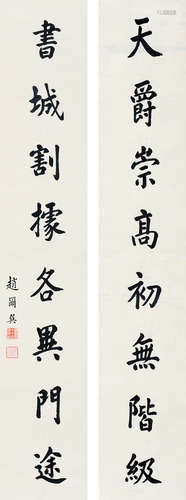 天爵崇高初無階級
書城割據各異門途
趙爾巽